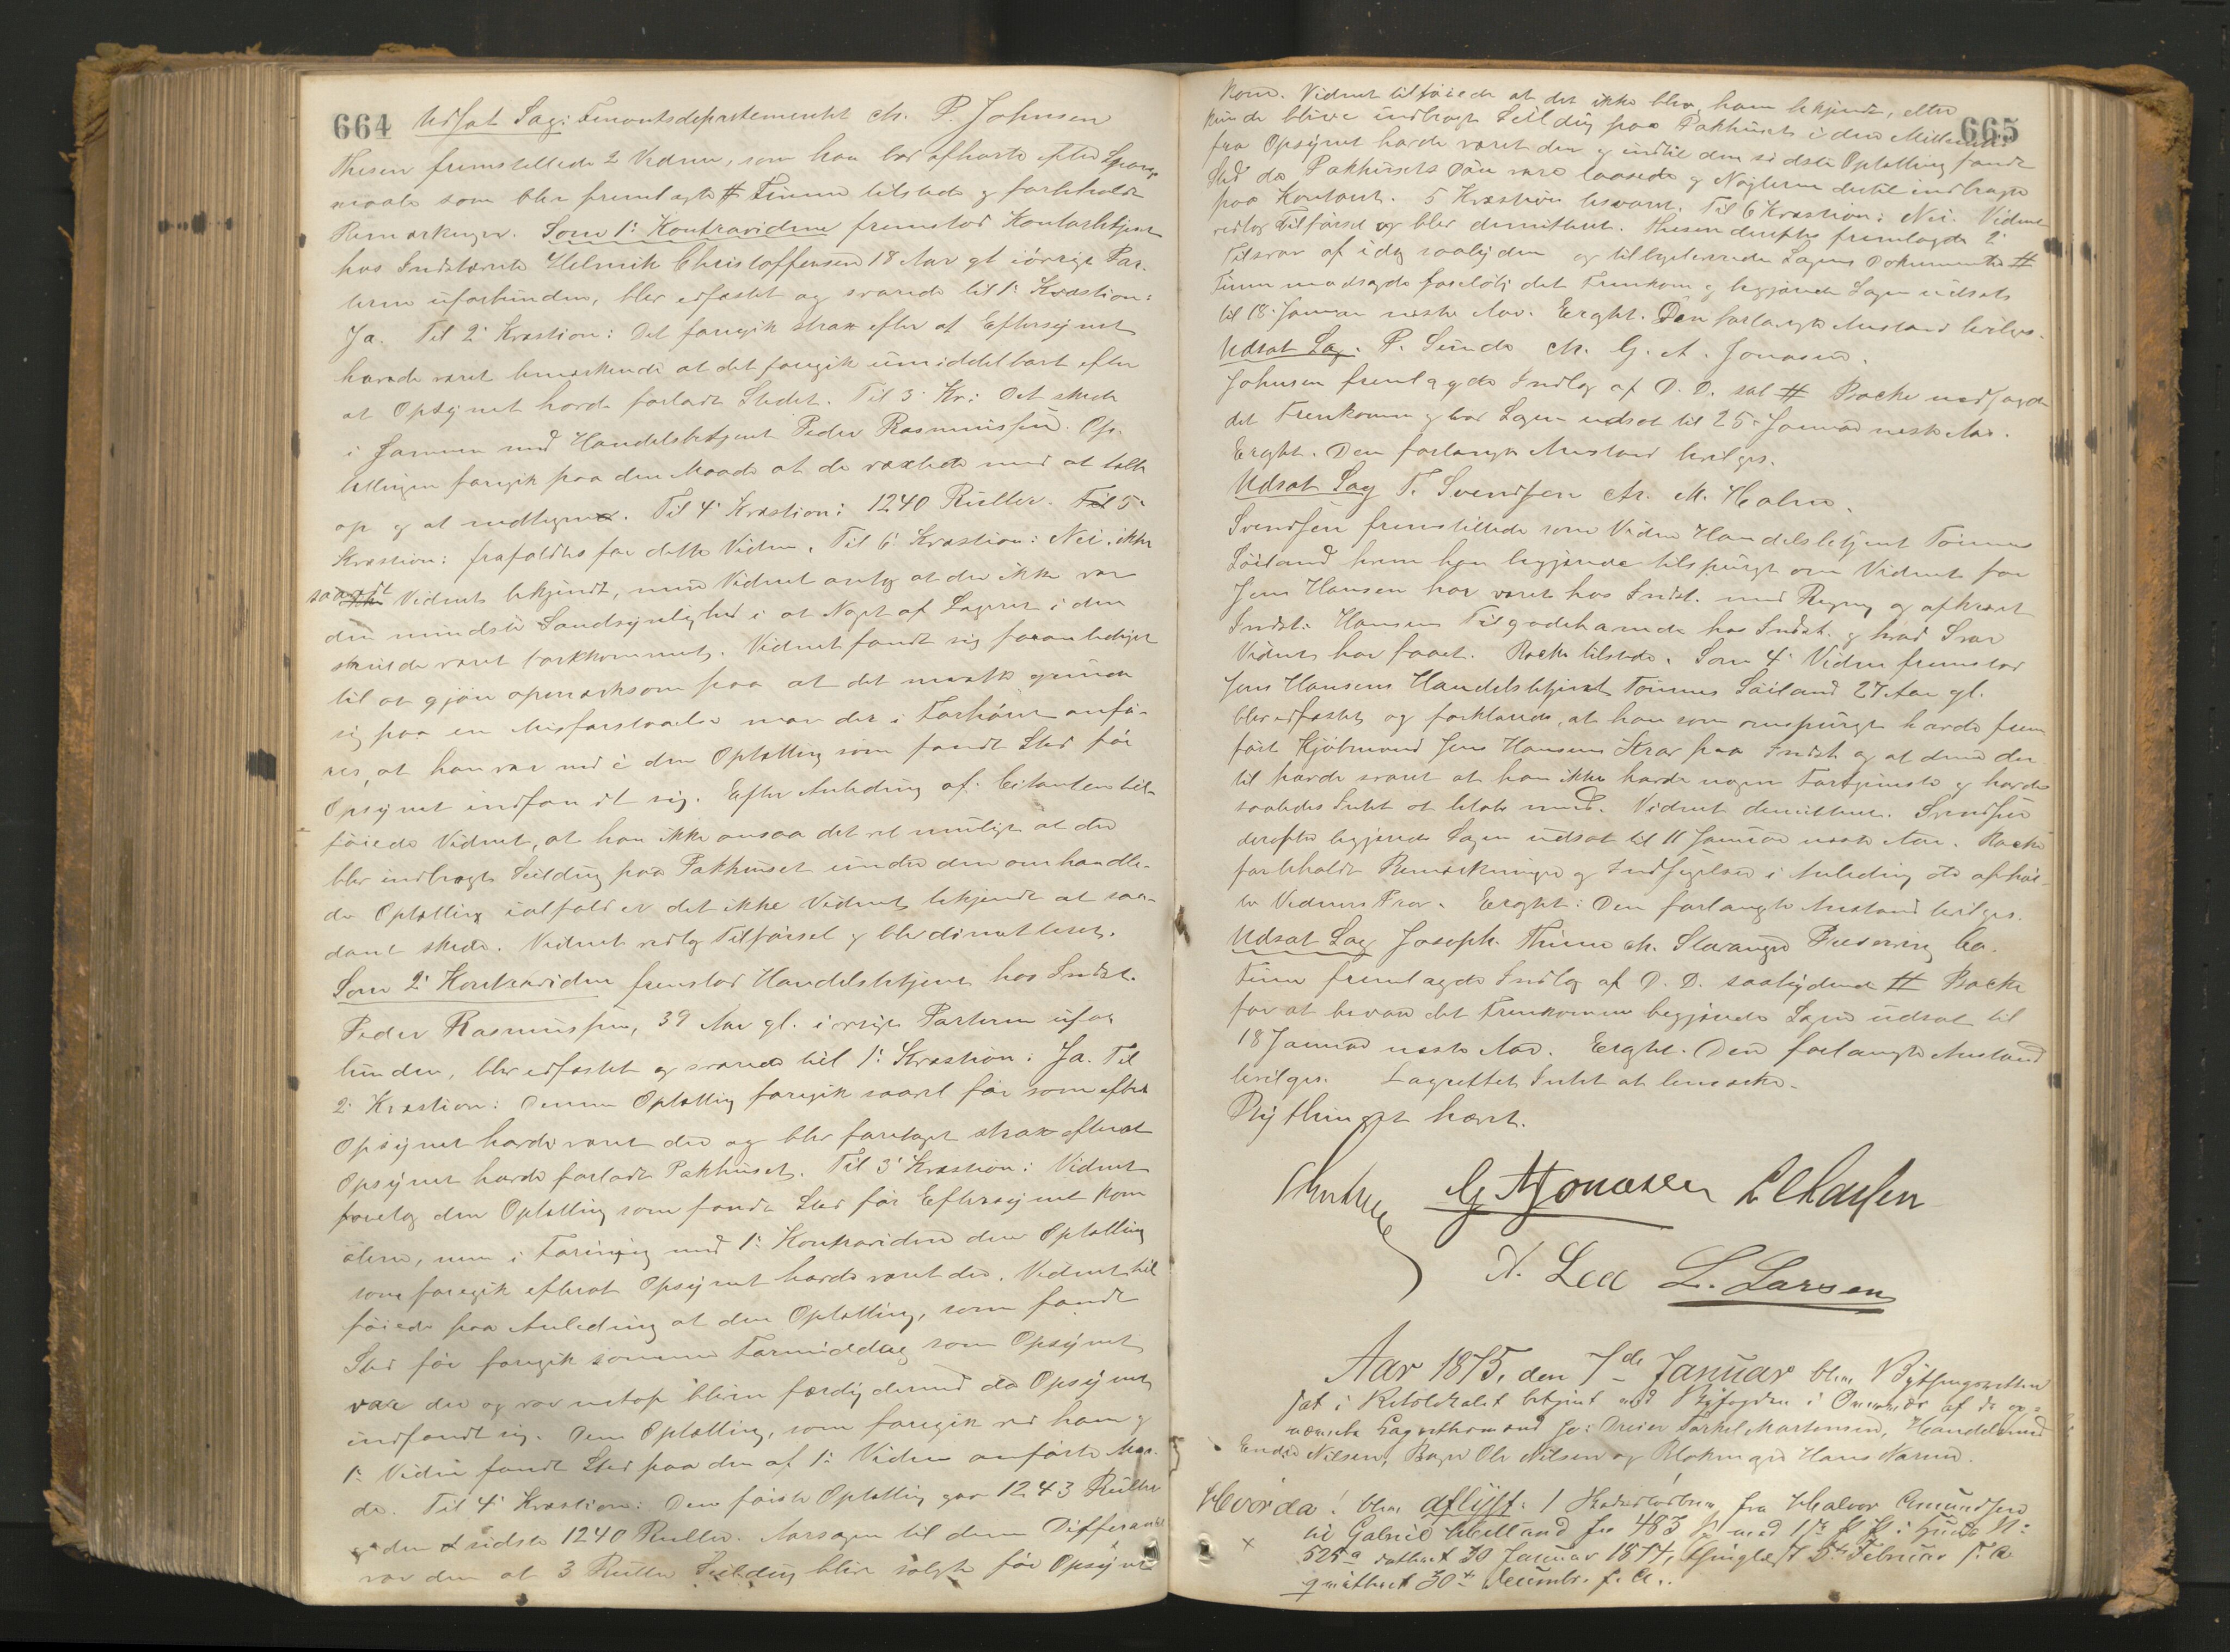 664
Udsat Sag: Finantsdepartementet ctr. P. Johnsen
Thesen fremstillede 2 Vidner, som han bad afhørte efter Spørgs-
maale som blev fremlagte # Finne tilstede og forbeholdt
Bemærkninger. Som 1ste Kontravidne fremstod Kontorbetjent
hos Indstævnte Helmik Christoffersen 18 Aar gl. iøvrigt Par-
terne uforbunden, blev edfæstet og svarede til 1ste Kvæstion:
Ja. Til 2. Kvæstion: Det foregik strax efter at Eftersynet
havde været bemærkende at det foregik umiddelbart efter
at Opsynet havde forladt Stedet. Til 3. Kv: Det skede
i Sammen med Handelsbetjent Peder Rasmussen. Op-
tællingen foregik paa den Maade at de vexlede med at tælle
op og at nedtegne. Til 4. Kvæstion: 1240 Ruller. Til 5.
Kvæstion: frafaldtes for dette Vidne. Til 6. Kvæstion: Nei, ikke
saavidt Vidnet bekjendt, men Vidnet antog at der ikke var
den mindste Sandsynlighed i at Noget af Lageret i den
skulde været bortkommet. Vidnet fandt sig foranlediget
til at gjøre opmærksom paa at det maatte grunde
sig paa en Misforstaaelse naar der i Forhøret anfø-
res, at han var med i den Optælling som fandt Sted før
Opsynet indfandt sig. Efter Anledning af Citanten til-
føiede Vidnet, at han ikke ansaa det vel muligt at der
blev indbragt Seildug paa Pakhuset under den omhandle-
de Optælling ialfald er det ikke Vidnet bekjendt at saa-
dant skede. Vidnet vedtog Tilførsel og blev dimitteret.
Som 2. Kontravidne fremstod Handelsbetjent hos Indst.
Peder Rasmussen, 39 Aar gl. iøvrigt Parterne ufor
bunden, blev edfæstet og svarede til 1ste Kvæstion: Ja. Til
2. Kvæstion: Denne Optælling foregik saavel før som efter
Opsynet havde været der og blev foretaget strax efterat
Opsynet havde forladt Pakhuset. Til 3. Kvæstion: Vidnet
foretog den Optælling som fandt Sted før Eftersynet kom
alene, men i Forening med 1ste Kontravidne den Optælling
som foregik efterat Opsynet havde været der. Vidnet til
føiede paa Anledning at den Optælling, som fandt
Sted før foregik samme Formiddag som Opsynet
var der og var netop bleven færdig dermed da Opsynet
indfandt sig. Den Optælling, som foregik ved ham og
1ste Vidne fandt Sted paa den af 1ste Vidne anførte Maa-
de. Til 4. Kvæstion: Den første Optælling gav 1243 Ruller
og den sidste 1240 Ruller. Aarsagen til denne Differance
var den at 3 Ruller Seildug blev solgt før Opsynet
665
kom. Vidnet tilføiede at det ikke blev ham bekjendt, eller
kunde blive indbragt Seildug paa Pakhuset i den Mellemtid
fra Opsynet havde været der og indtil den sidste Optælling fandt
Sted da Pakhusets Døre vare laasede og Nøglerne dertil indbragte
paa Kontoret. 5 Kvæstion besvaret. Til 6 Kvæstion: Nei. Vidnet
vedtog Tilførsel og blev dimitteret. Thesen derefter fremlagde
Tilsvar af idag saalydende og tilbageleverede Sagens Dokumenter #
Finne modsagde foreløbig det Fremkomne og begjærede Sagen udsat
til 18. Januar næste Aar. Eragtet: Den forlangte Anstand bevilges.
Udsat Sag. P. Sunde ctr. G. A. Jonasen.
Johnsen fremlagde Indlæg af D. D. sal # Backe modsagde
det Fremkomne og bad Sagen udsat til 25. Januar næste Aar.
Eragtet: Den forlangte Anstand bevilges.
Udsat Sag T. Svendsen ctr. M. Holm.
Svendsen fremstillede som Vidne Handelsbetjent Tønnes
Søiland hvem han begjærede tilspurgt om Vidnet for
Jens Hansen har været hos Indst. med Regning og afkrævet
Indst. Hansens Tilgodehavende hos Indst. og hvad Svar
Vidnet har faaet. Backe tilstede. Som 4. Vidne fremstod
Jens Hansens Handelsbetjent Tønnes Søiland 27 Aar gl.
blev edfæstet og forklarede, at han som omspurgt havde frem
ført Kjøbmand Jens Hansens Krav paa Indst. og at denne der
til havde svaret at han ikke havde nogen Fortjeneste og havde
saaledes Intet at betale med. Vidnet dimitteret. Svendsen
derefter begjærede Sagen udsat til 11 Januar næste Aar. Backe
forbeholdt Bemærkninger og Indsigelser i Anledning de afhør-
te Vidners Prov. Eragtet: Den forlangte Anstand bevilges.
Udsat Sag Joseph Thime ctr. Stavanger Preserving Co.
Finne fremlagde Indlæg af D. D. saalydende # Backe
for at besvare det Fremkomne begjærede Sagen udsat til
18 Januar næste Aar. Eragtet: Den forlangte Anstand
bevilges. Lagrettet Intet at bemærke.
Bythinget hævet.
G A Jonasen L Clausen
N. Lea L. Larsen
Aar 1875, den 7de Januar blev Bythingsretten
sat i Retslokalet betjent ved Byfogden i Overvær af de op-
nævnte Lagrettesmænd Dreier Torkel Martensen, Handelsmand
Endre Nilsen, Bager Ole Nilsen og Blokmager Hans Narum.
Hvorda! blev aflyst: 1 Skadesløsbrev fra Halvor Amundsen
til Gabriel Meiland for 483 Sp med 1ste P. P. i Huus No:
525a dateret 30 Januar 1874, thinglæst 5te Februar s. A.
× qvitteret 30te Decembr. f. A.